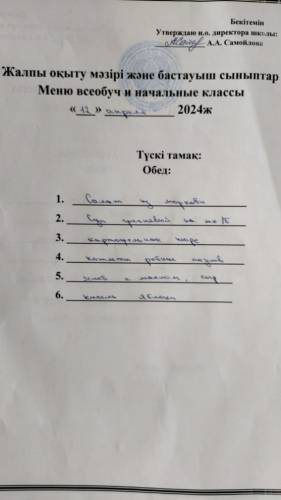 Бекітемін
Утверждаю и.о. директора школы:
А.А. Самойлова
Жалпы оқыту мәзірі және бастауыш сыныптар
Меню всеобуч и начальные классы
« 12 » апреля 2024ж
Түскі тамақ:
Обед:
1. Салат из моркови
2. Суп гречневый на мк/б
3. картофельное пюре
4. котлета рубленая
5. хлеб с маслом, сыр
6. кисель яблоки